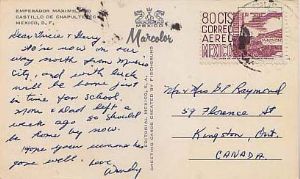 EMPERADOR MAXIMI
CASTILLO DE CHAPULTEPEC
MEXICO, D. F.
MEXICO
Marcolor
80 CTS
CORREO
AEREO
MEXICO
Dear &
We're now on our
way north from Mexico
City, and with luck
will be home just
in time for school.
Mom & Dad left a
week ago so should
be home by now.
Hope your summer has
gone well. Love
Wendy
Mr & Mrs Raymond
59 Florence St
Kingston, Ont.
CANADA.